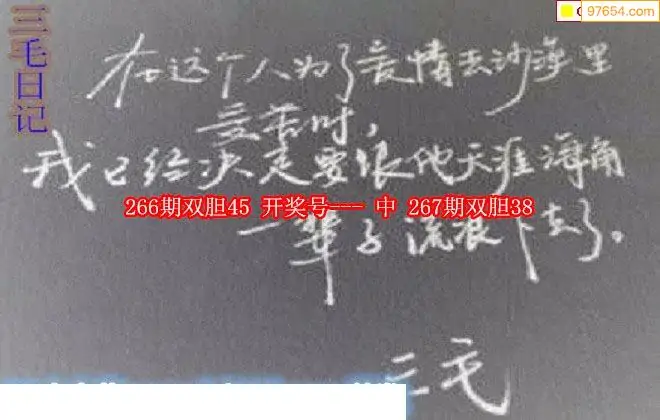 三毛日记
97654.com
在这个人为了爱情去沙漠里
受苦时,
我已经决定要跟他天涯海角
266期双胆45 开奖号--- 中 267期双胆38
一辈子流浪下去了。
三毛